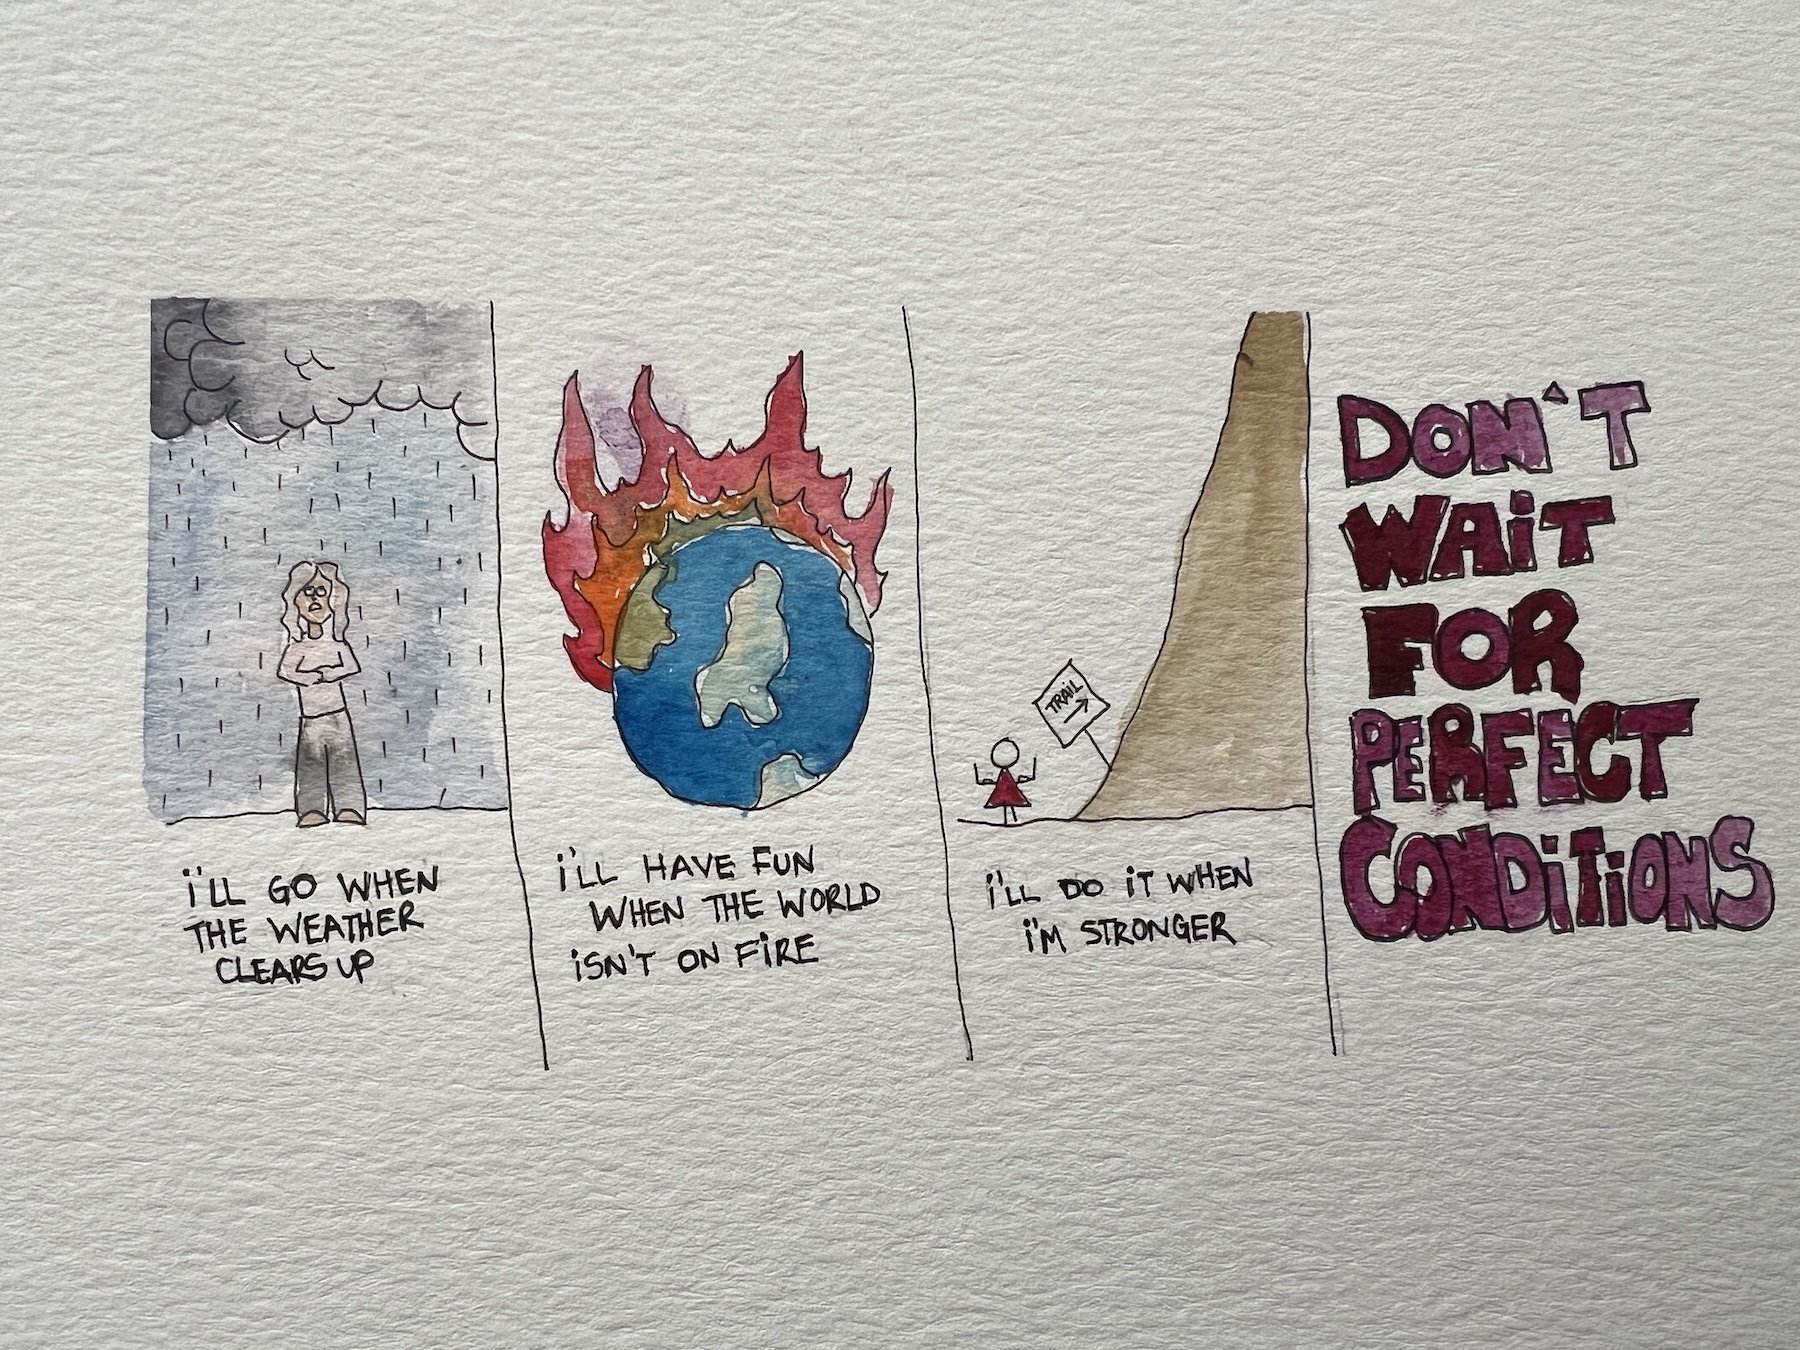 i'LL GO WHEN
THE WEATHER
CLEARS UP
i'LL HAVE FUN
WHEN THE WORLD
iSN'T ON FiRE
TRAiL
i'LL DO iT WHEN
i'M STRONGER
DON'T
WAiT
FOR
PERFECT
CONDiTiONS